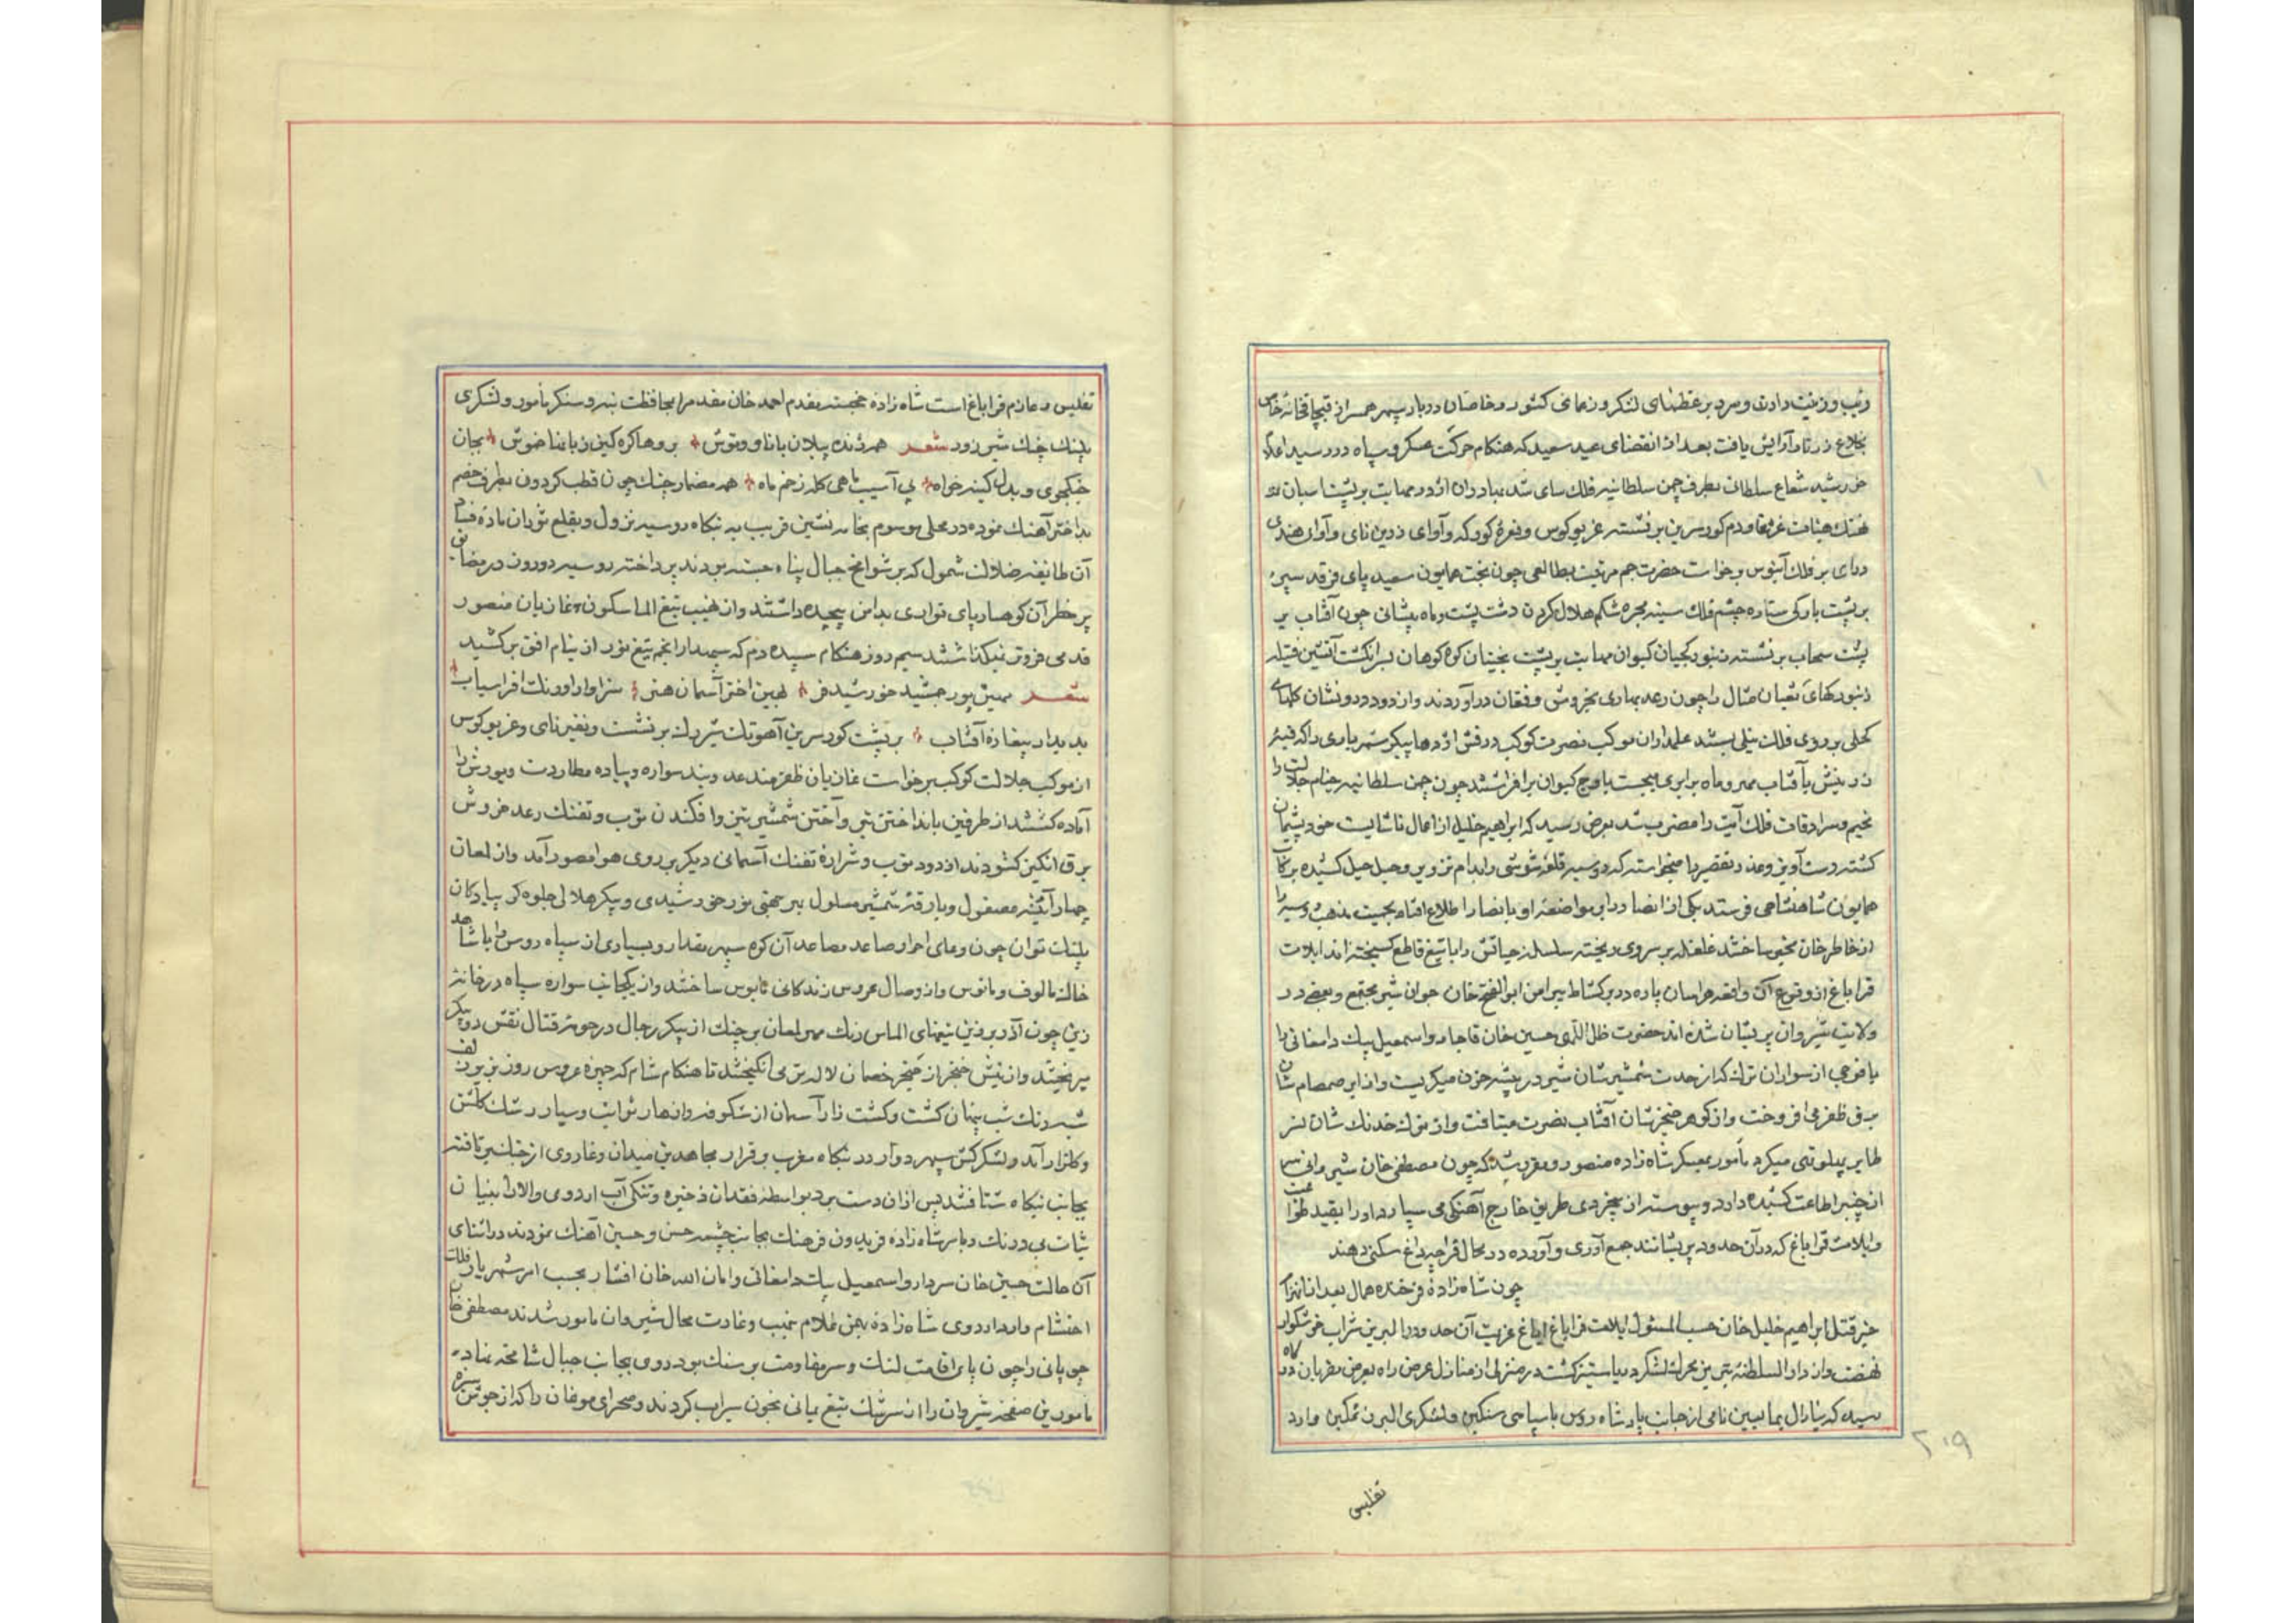 وزیب و زینت دادن و مرد بر عظمای لشکر و زعمای کشور و خاصان دربار سپهر همسر از قیچاقخانه خاص
بخلاع زرتار آرایش یافت بعد از انقضای عید سعید که هنکام حرکت عسکر و سپاه در رسید
خورشید شعاع سلطانی بطرف چمن سلطانیه فلک سای شد
غریو کوس و نعره کورکه و آوای زرین نای و آواز هندی
درای بر فلک آبنوس برخواست حضرت جم مرتبت بطالعی چون بخت همایون سعید پای فرقد سپر
بر پشت بارکی ستاره چشم فلک سینه مجره شکم هلال کردن دشت پشت و ماه پیشانی چون آفتاب بر
پشت سحاب بر نشسته زنبورکچیان کیوان مهابت بر پشت بختیان کوه کوهان بسر انکشت آتشین فتیله
زنبورکهای ثعبان مثال را چون رعد بهاری بخروش و فغان در آوردند و از دود درونشان کلهای
کحلی بر روی فلک نیلی بستند علمداران موکب نصرت کوکب درفش اژدها پیکر شهریاری را که قبه
زرینش با آفتاب و مهر و ماه برابری میجست باوج کیوان برافراشتند چون چمن سلطانیه خیام جلالت را
مخیم و سرادقات فلک آیت را مضرب شد بعرض رسید که ابراهیم خلیل از اعمال ناشایست خود پشیمان
کشته دست آویز و عذر تقصیر را میخواسته که روسیه قلعه شوشی را بدام تزویر و حیل کشیده برکاب
همایون شاهنشاهی فرستد یکی از انصار در این مواضعه او با نصارا اطلاع افتاده بجیت مذهب روسیه را
از خاطر خان مخبر ساخته غلغله بر سر وی ریخته سلسله حیاتش را با تیغ قاطع کسیخته اند ایلات
قراباغ از وقوع آن واقعه هراسان پاره در برکشاط پیرامن ابوالفتح خان جوان شیر مجتمع و بعضی در
ولایت شیروان پریشان شده اند حضرت ظل اللهی حسین خان قاجار و اسمعیل بیک دامغانی را
با فوجی از سواران ترک که از حدت شمشیرشان شیر در بیشه خون میکریست و از ابر صمصام شان
برق ظفر می افروخت و از کوهر خنجرشان آفتاب نصرت میتافت و از ترک خدنک شان نسر
طایر پهلو تهی میکرد مأمور بعسکر شاه زاده منصور و مقرر شد که چون مصطفی خان شیروانی سر
از چنبر اطاعت کشیده دارد و پیوسته از بیخردی طریق خارج آهنکی می سپارد او را بقید طواعیت
و ایلات قراباغ که در آن حدود پریشانند جمع آوری و آورده در محال قراجه داغ سکنی دهند
چون شاه زادۀ فرخنده همال بعد از
خبر قتل ابراهیم خلیل خان حسب المسئول ایلات قراباغ ایاغ عزیمت آن حدود را لبریز شراب خوشکوار
نهضت و از دار السلطنه تبریز محرک لشکر دریا ستیز کشت در منزلی از منازل عرض راه بعرض مقربان درکاه
رسید که ینارال نامی از جانب پادشاه روس با سپاهی سنکین و لشکری البرز تمکین وارد
۲۰۹
تفلیس
تفلیس و عازم قراباغ است شاه زاده خجسته مقدم احمد خان مقدم را بمحافظت سنکر مأمور و لشکری
پلنک چنک شیر زور شعر همه زنده پیلان با تاو و توش بروها کره کین زبانها خموش بجان
جنکجوی و بدل کینه خواه بی آسیب ماهی کله زخم ماه همه مضمار جنک چون قطب کردون بطرف خصم
بداختر آهنک نموده در محلی موسوم بخانه نشین قریب به بنکاه روسیه نزول و بقلع
آن طایفه ضلالت شمول که بر شوامخ جبال پناه جسته بودند پرداخته روسیه دو روز در مضایق
پر خطر آن کوهسار پای تواری بدامن پیچیده داشتند و از نهیب تیغ الماسکون غازیان منصور
قدمی فروتر نیکذاشتند سیم روز هنکام سپیده دم که سپهدار انجم تیغ نور از نیام افق برکشید
شعر مهین پور جمشید خورشید فر بهین اختر آسمان هنر سزاوار اورنک افراسیاب
بدیدار پیغاره آفتاب بر پشت کور سرین آهوتک شیردل بر نشست و نفیر نای و غریو کوس
از موکب جلالت کوکب برخواست غازیان ظفرمند عدو بند سواره و پیاده مطاردت و یورش را
آماده کشتند از طرفین بانداختن تیر و آختن شمشیر تیز و افکندن توپ و تفنک رعد خروش
برق انکیز کشودند از دود توپ و شراره تفنک آسمانی دیکر بر روی هوا مصور آمد و از لمعان
چهار آئینه مصقول و بارقه شمشیر مسلول بهر جهتی نور خورشیدی و پیکر هلالی جلوه کر پیادکان
پلنک توان چون وعای احرار صاعد مصاعد آن کوه سپهر مقدار و بسیاری از سپاه روس را با شاهد
خاک مالوف و مانوس و از وصال عروس زندکانی مایوس ساختند و از یکجانب سواره سپاه در خانه
زین چون آذر برزین تیغهای الماس رنک مهر لمعان بر چنک از پیکر رجال در حومه قتال نقش دو پیکر
میریختند و از نیش خنجر از حنجر خصمان لاله تر می انکیختند تا هنکام شام که چهره عروس روز بزیر زلف
شبرنک شب پنهان کشت و کشت زار آسمان از شکوفه و ازهار ثوابت و سیار رشک کلشن
و کلزار آمد و لشکرکش سپهر دوار در بنکاه مغرب و قرار مجاهدین میدان وغا روی از جنک بر تافته
بجانب بنکاه شتافتند پس از آن دست برد بواسطه فقدان ذخیره و تنکی آب اردوی والا را بنیان
ثبات بی درنک و بامر شاه زاده فریدون فرهنک بجانب چشمه حسن و حسین آهنک نمودند در اثنای
آن حالت حسین خان سردار و اسمعیل بیک دامغانی و امان الله خان افشار بحسب امر شهریار فلک
احتشام وارد اردوی شاه زاده بهرام غلام بنهب و غارت محال شیروان مامور شدند مصطفی خان
چو پانی را چون پای اقامت لنک و سر مقاومت بر سنک بود روی بجانب جبال شامخه نهاده
مامورین صفحه شیروان را از سرشک تیغ یمانی بخون سیراب کردند و صحرای موغان را که از جوش سبزه